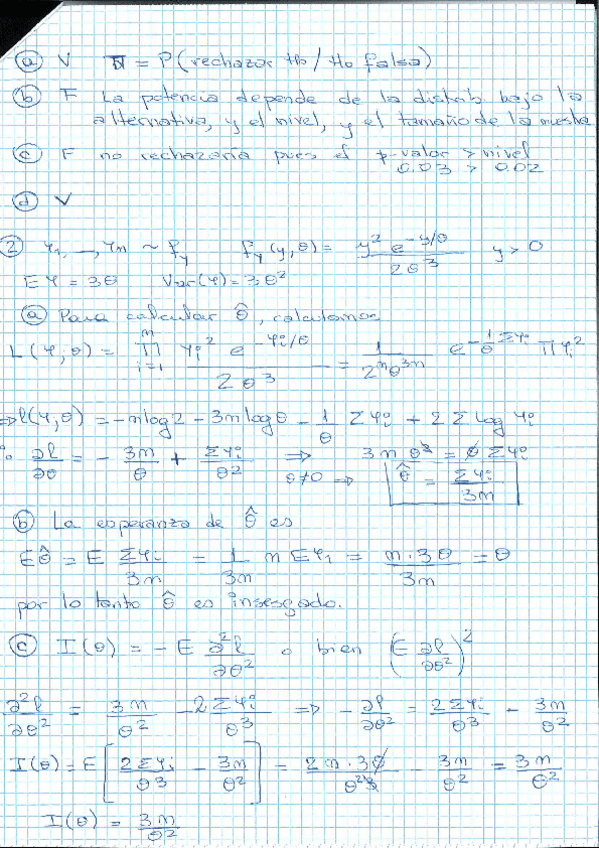 ⓐ V Π = P(rechazar H₀ / H₀ falsa)
ⓑ F La potencia depende de la distrib. bajo la
alternativa, y el nivel, y el tamaño de la muestra
ⓒ F no rechazaría pues el p-valor > nivel
0.03 > 0.02
ⓓ V
② Y₁, ..., Yₙ ~ f_Y f_Y(y, θ) = y² e^(-y/θ) / 2θ³ y > 0
EY = 3θ Var(Y) = 3θ²
ⓐ Para calcular θ̂, calculamos
L(Y, θ) = ∏_{i=1}^{n} Yᵢ² e^(-Yᵢ/θ) / 2θ³ = 1 / 2ⁿθ³ⁿ e^(-1/θ ΣYᵢ) ∏Yᵢ²
⇒ l(Y, θ) = -n log 2 - 3n log θ - 1/θ ΣYᵢ + 2 Σ log Yᵢ
∂l/∂θ = - 3n/θ + ΣYᵢ/θ² ⇒ 3n θ² = θ ΣYᵢ
θ≠0 ⇒ θ̂ = ΣYᵢ / 3n
ⓑ La esperanza de θ̂ es
Eθ̂ = E ΣYᵢ/3n = 1/3n n EY₁ = n·3θ/3n = θ
por lo tanto θ̂ es insesgado.
ⓒ I(θ) = - E ∂²l/∂θ² o bien (E ∂l/∂θ²)²
∂²l/∂θ² = 3n/θ² - 2ΣYᵢ/θ³ ⇒ - ∂l/∂θ² = 2ΣYᵢ/θ³ - 3n/θ²
I(θ) = E[2ΣYᵢ/θ³ - 3n/θ²] = 2n·3θ/θ³ - 3n/θ² = 3n/θ²
I(θ) = 3n/θ²